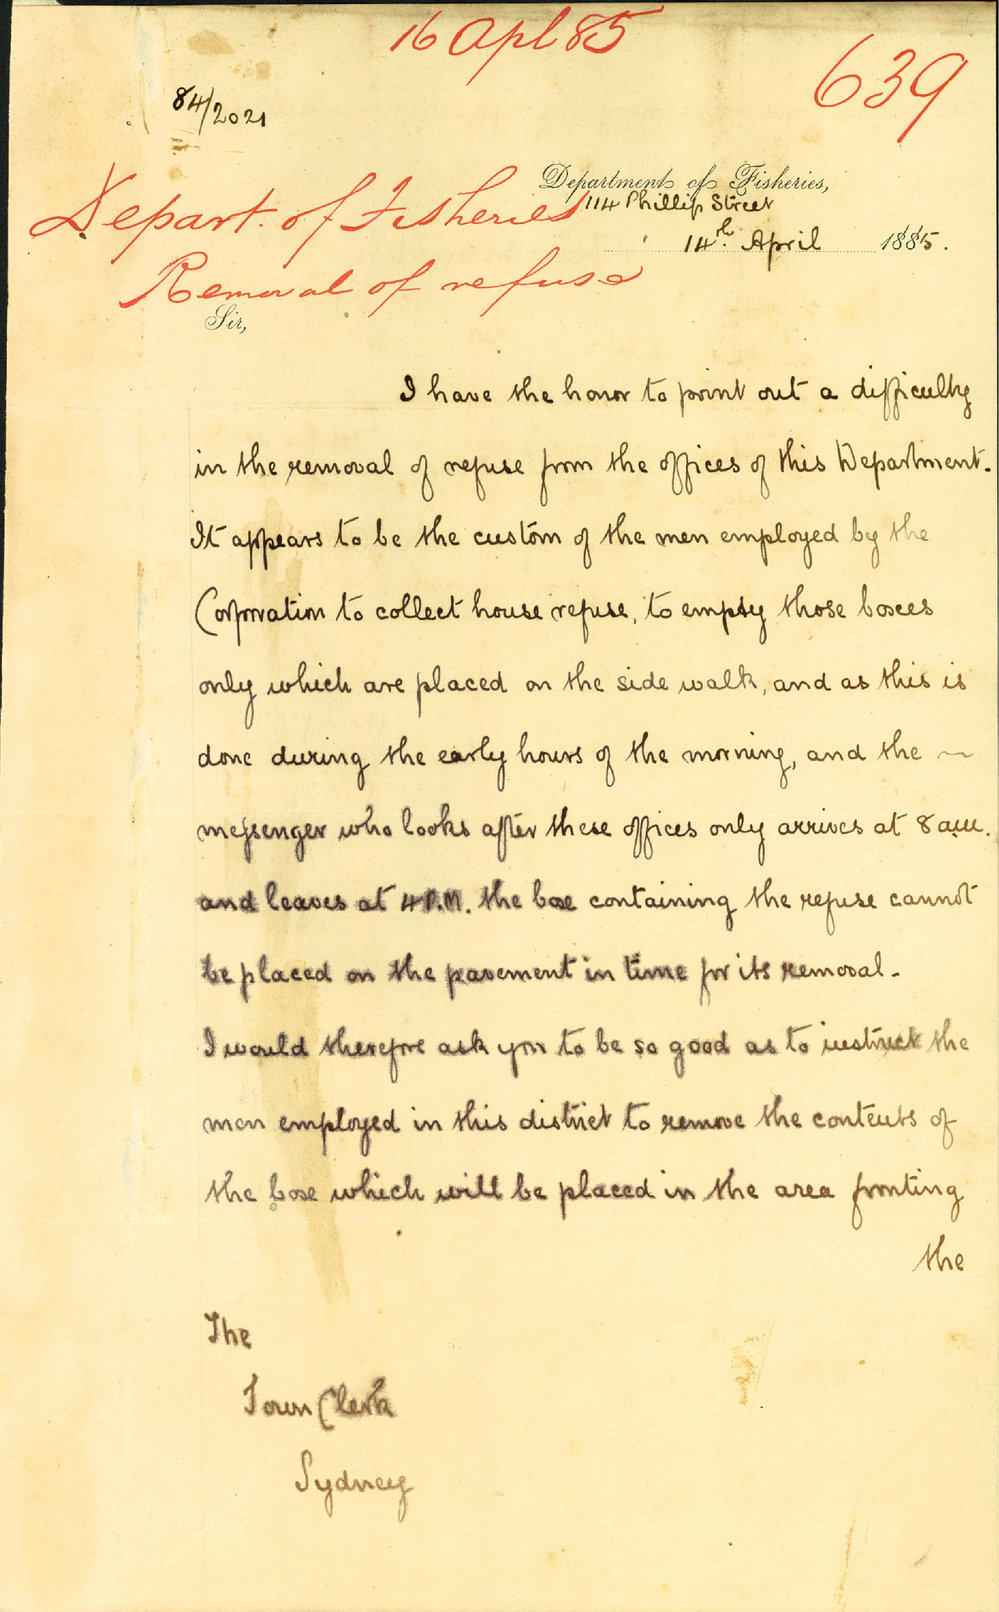 16 Apl 85
639
84/2021
Department of Fisheries,
114 Phillip Street
14th April 1885.
Depart. of Fisheries
Removal of refuse
Sir,
I have the honor to point out a difficulty
in the removal of refuse from the offices of this Department.
It appears to be the custom of the men employed by the
Corporation to collect house refuse, to empty those boxes
only which are placed on the side walk, and as this is
done during the early hours of the morning, and the ~
messenger who looks after these offices only arrives at 8 a.m.
and leaves at 4 P.M. the box containing the refuse cannot
be placed on the pavement in time for its removal.
I would therefore ask you to be so good as to instruct the
men employed in this district to remove the contents of
the box which will be placed in the area fronting
the
The
Town Clerk
Sydney